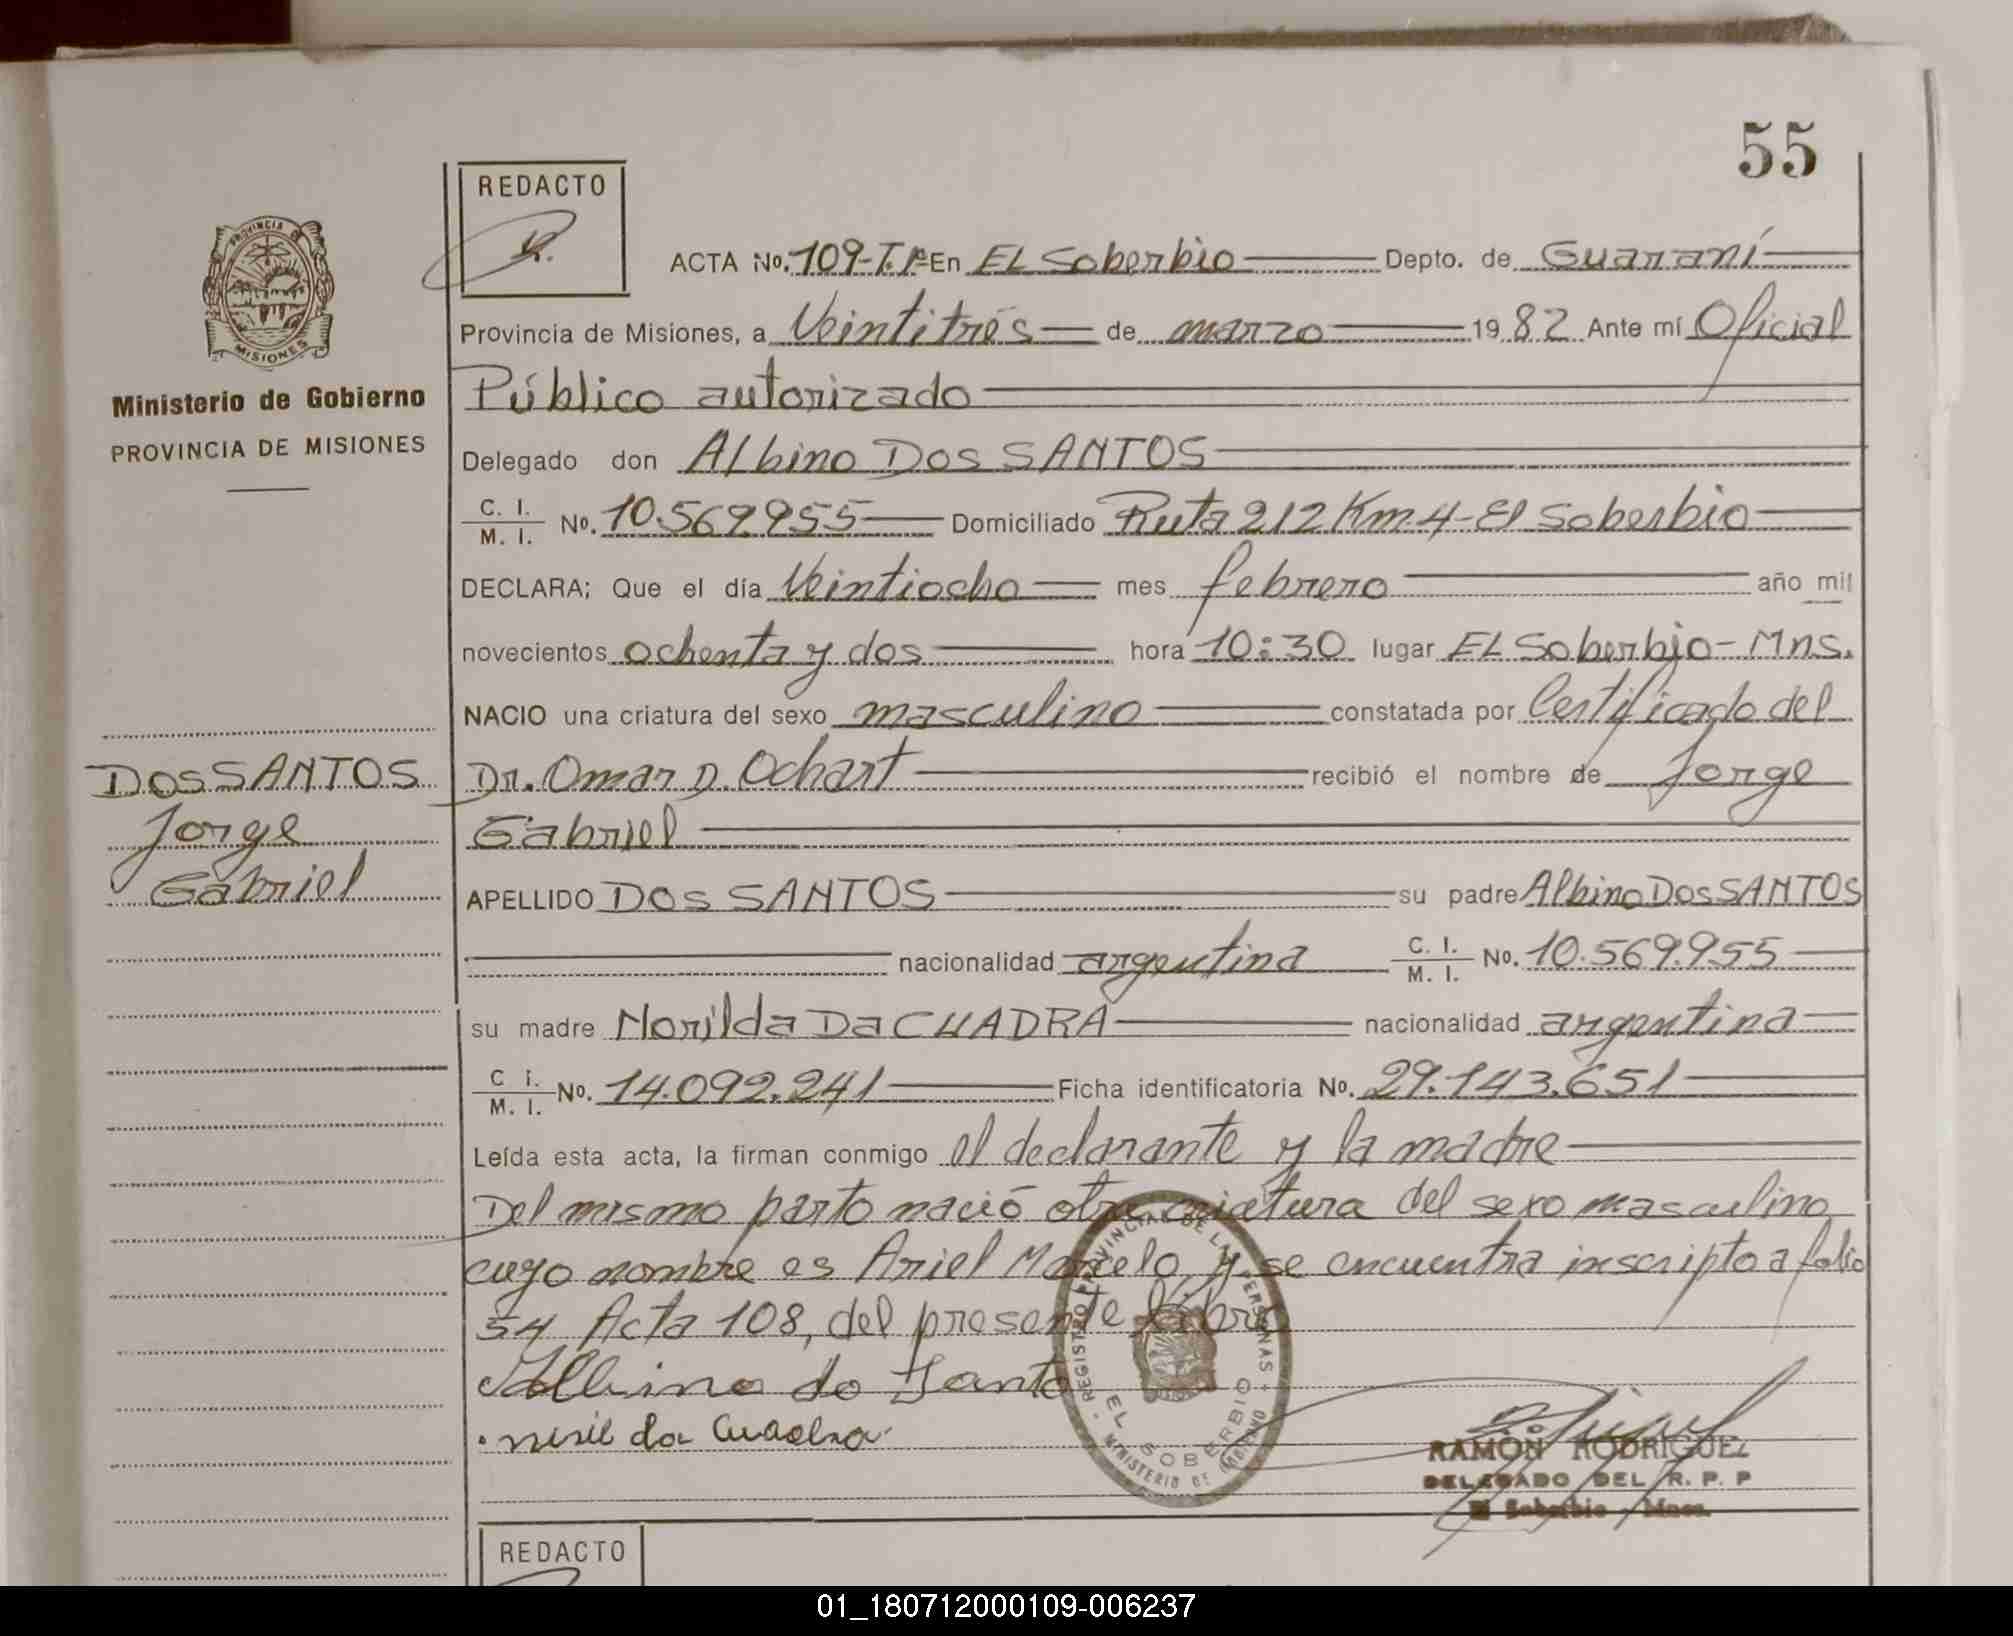 55
REDACTO
PROVINCIA DE
MISIONES
Ministerio de Gobierno
PROVINCIA DE MISIONES
ACTA No. 109-T.1º En EL Soberbio Depto. de Guaraní
Provincia de Misiones, a Veintitrés de marzo 1982 Ante mí Oficial
Público autorizado
Delegado don Albino Dos SANTOS
C. I. / M. I. No. 10.569.955 Domiciliado Ruta 212 Km. 4 - El Soberbio
DECLARA; Que el día Veintiocho mes febrero año mil
novecientos ochenta y dos hora 10:30 lugar EL Soberbio - Mns.
NACIO una criatura del sexo masculino constatada por Certificado del
Dr. Omar D. Ochart recibió el nombre de Jorge
Gabriel
DOS SANTOS
Jorge
Gabriel
APELLIDO DOS SANTOS su padre Albino Dos SANTOS
nacionalidad argentina C. I. / M. I. No. 10.569.955
su madre Norilda Da CUADRA nacionalidad argentina
C. I. / M. I. No. 14.092.241 Ficha identificatoria No. 29.143.651
Leída esta acta, la firman conmigo el declarante y la madre
Del mismo parto nació otra criatura del sexo masculino
cuyo nombre es Ariel Marcelo, y se encuentra inscripto a folio
54 Acta 108, del presente libro
Albino do Santo
REGISTRO PROVINCIAL DE LAS PERSONAS
EL SOBERBIO
MINISTERIO DE GOBIERNO
da Cuadra
RAMON RODRIGUEZ
DELEGADO DEL R. P. P
El Soberbio - Mnes.
REDACTO
01_180712000109-006237